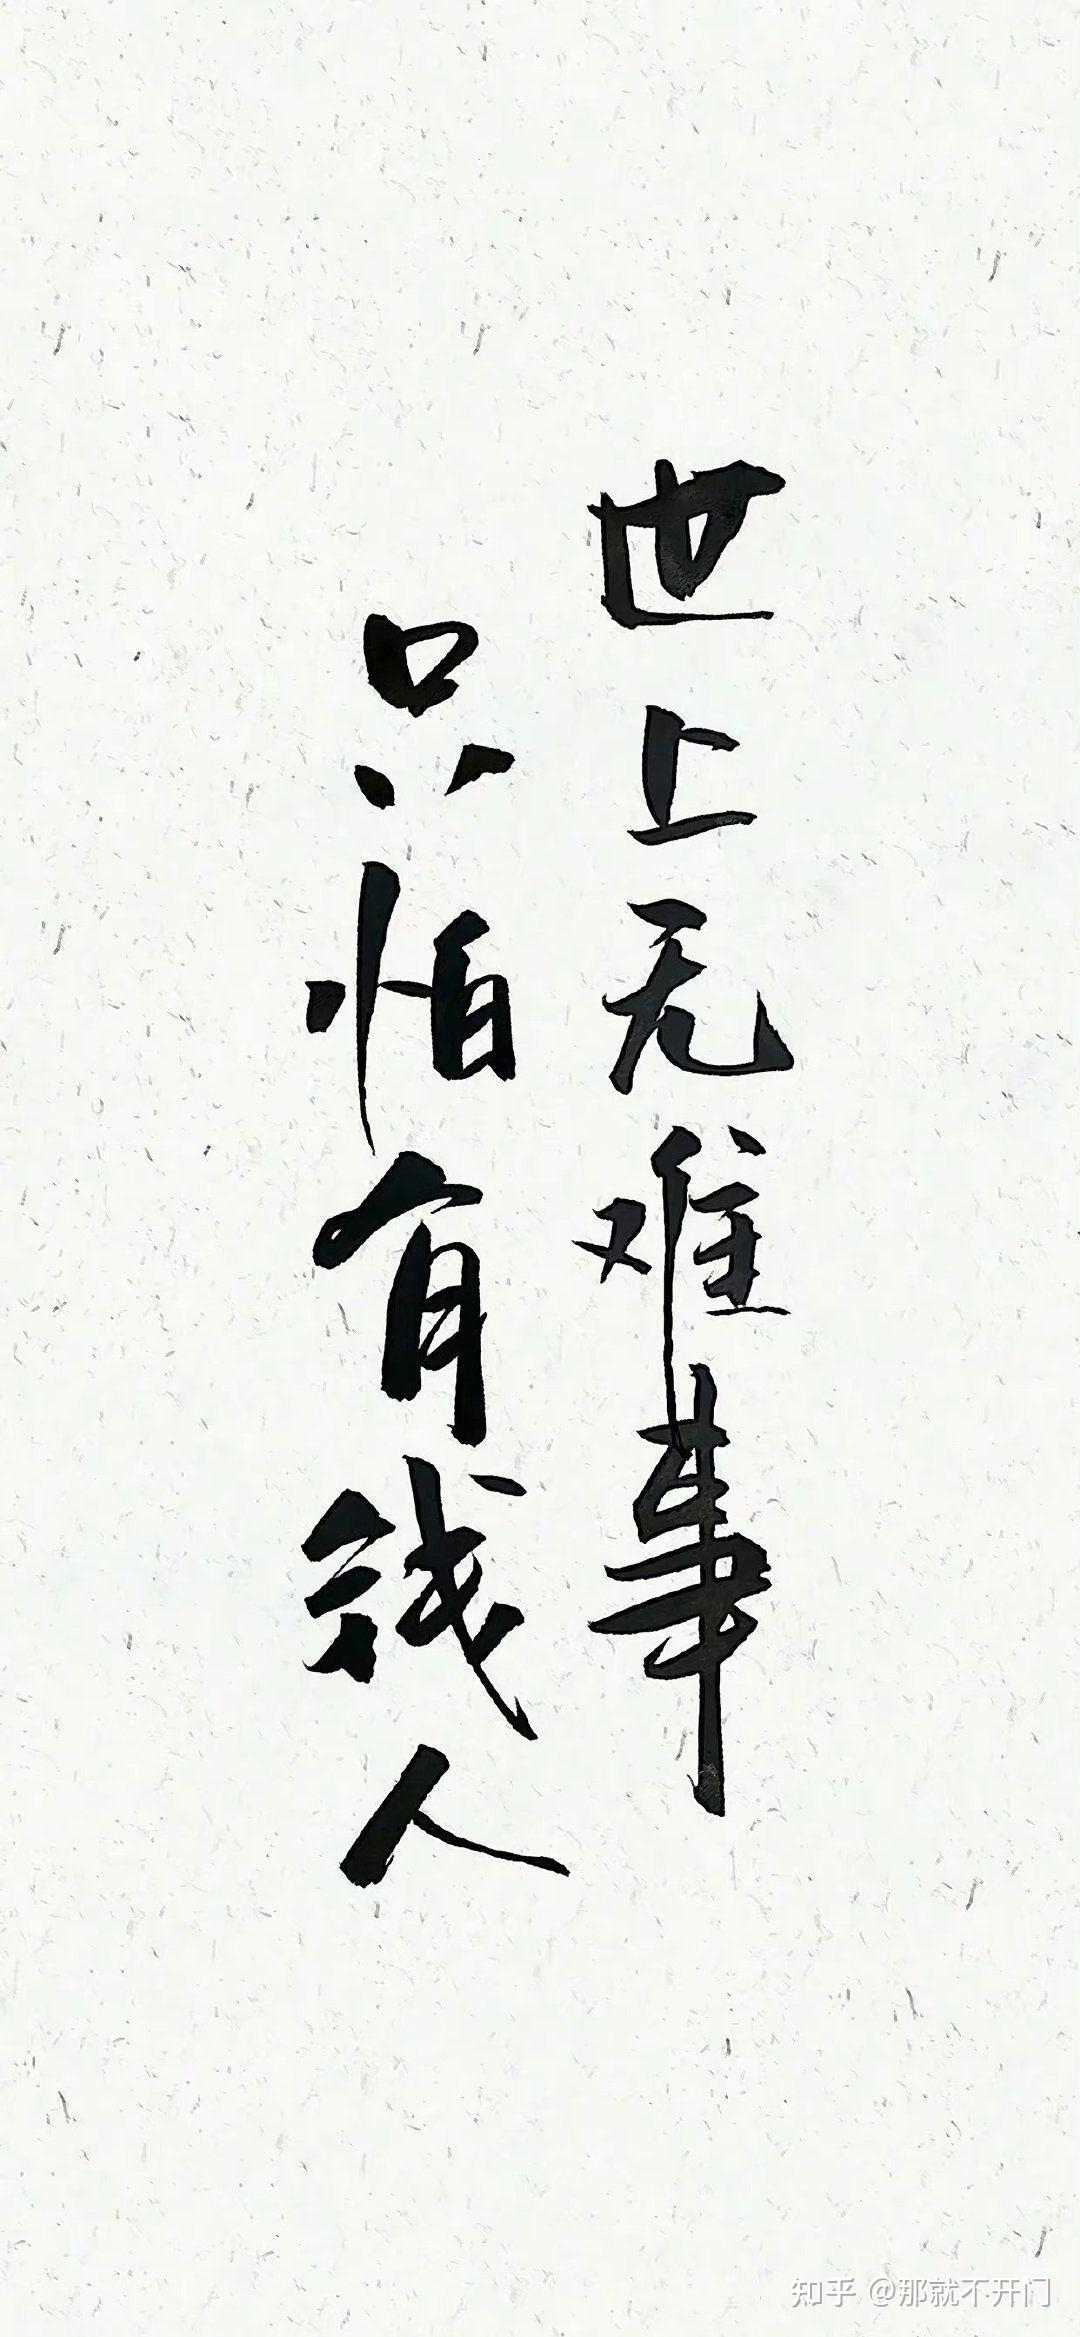 世上无难事
只怕有钱人
知乎 @那就不开门